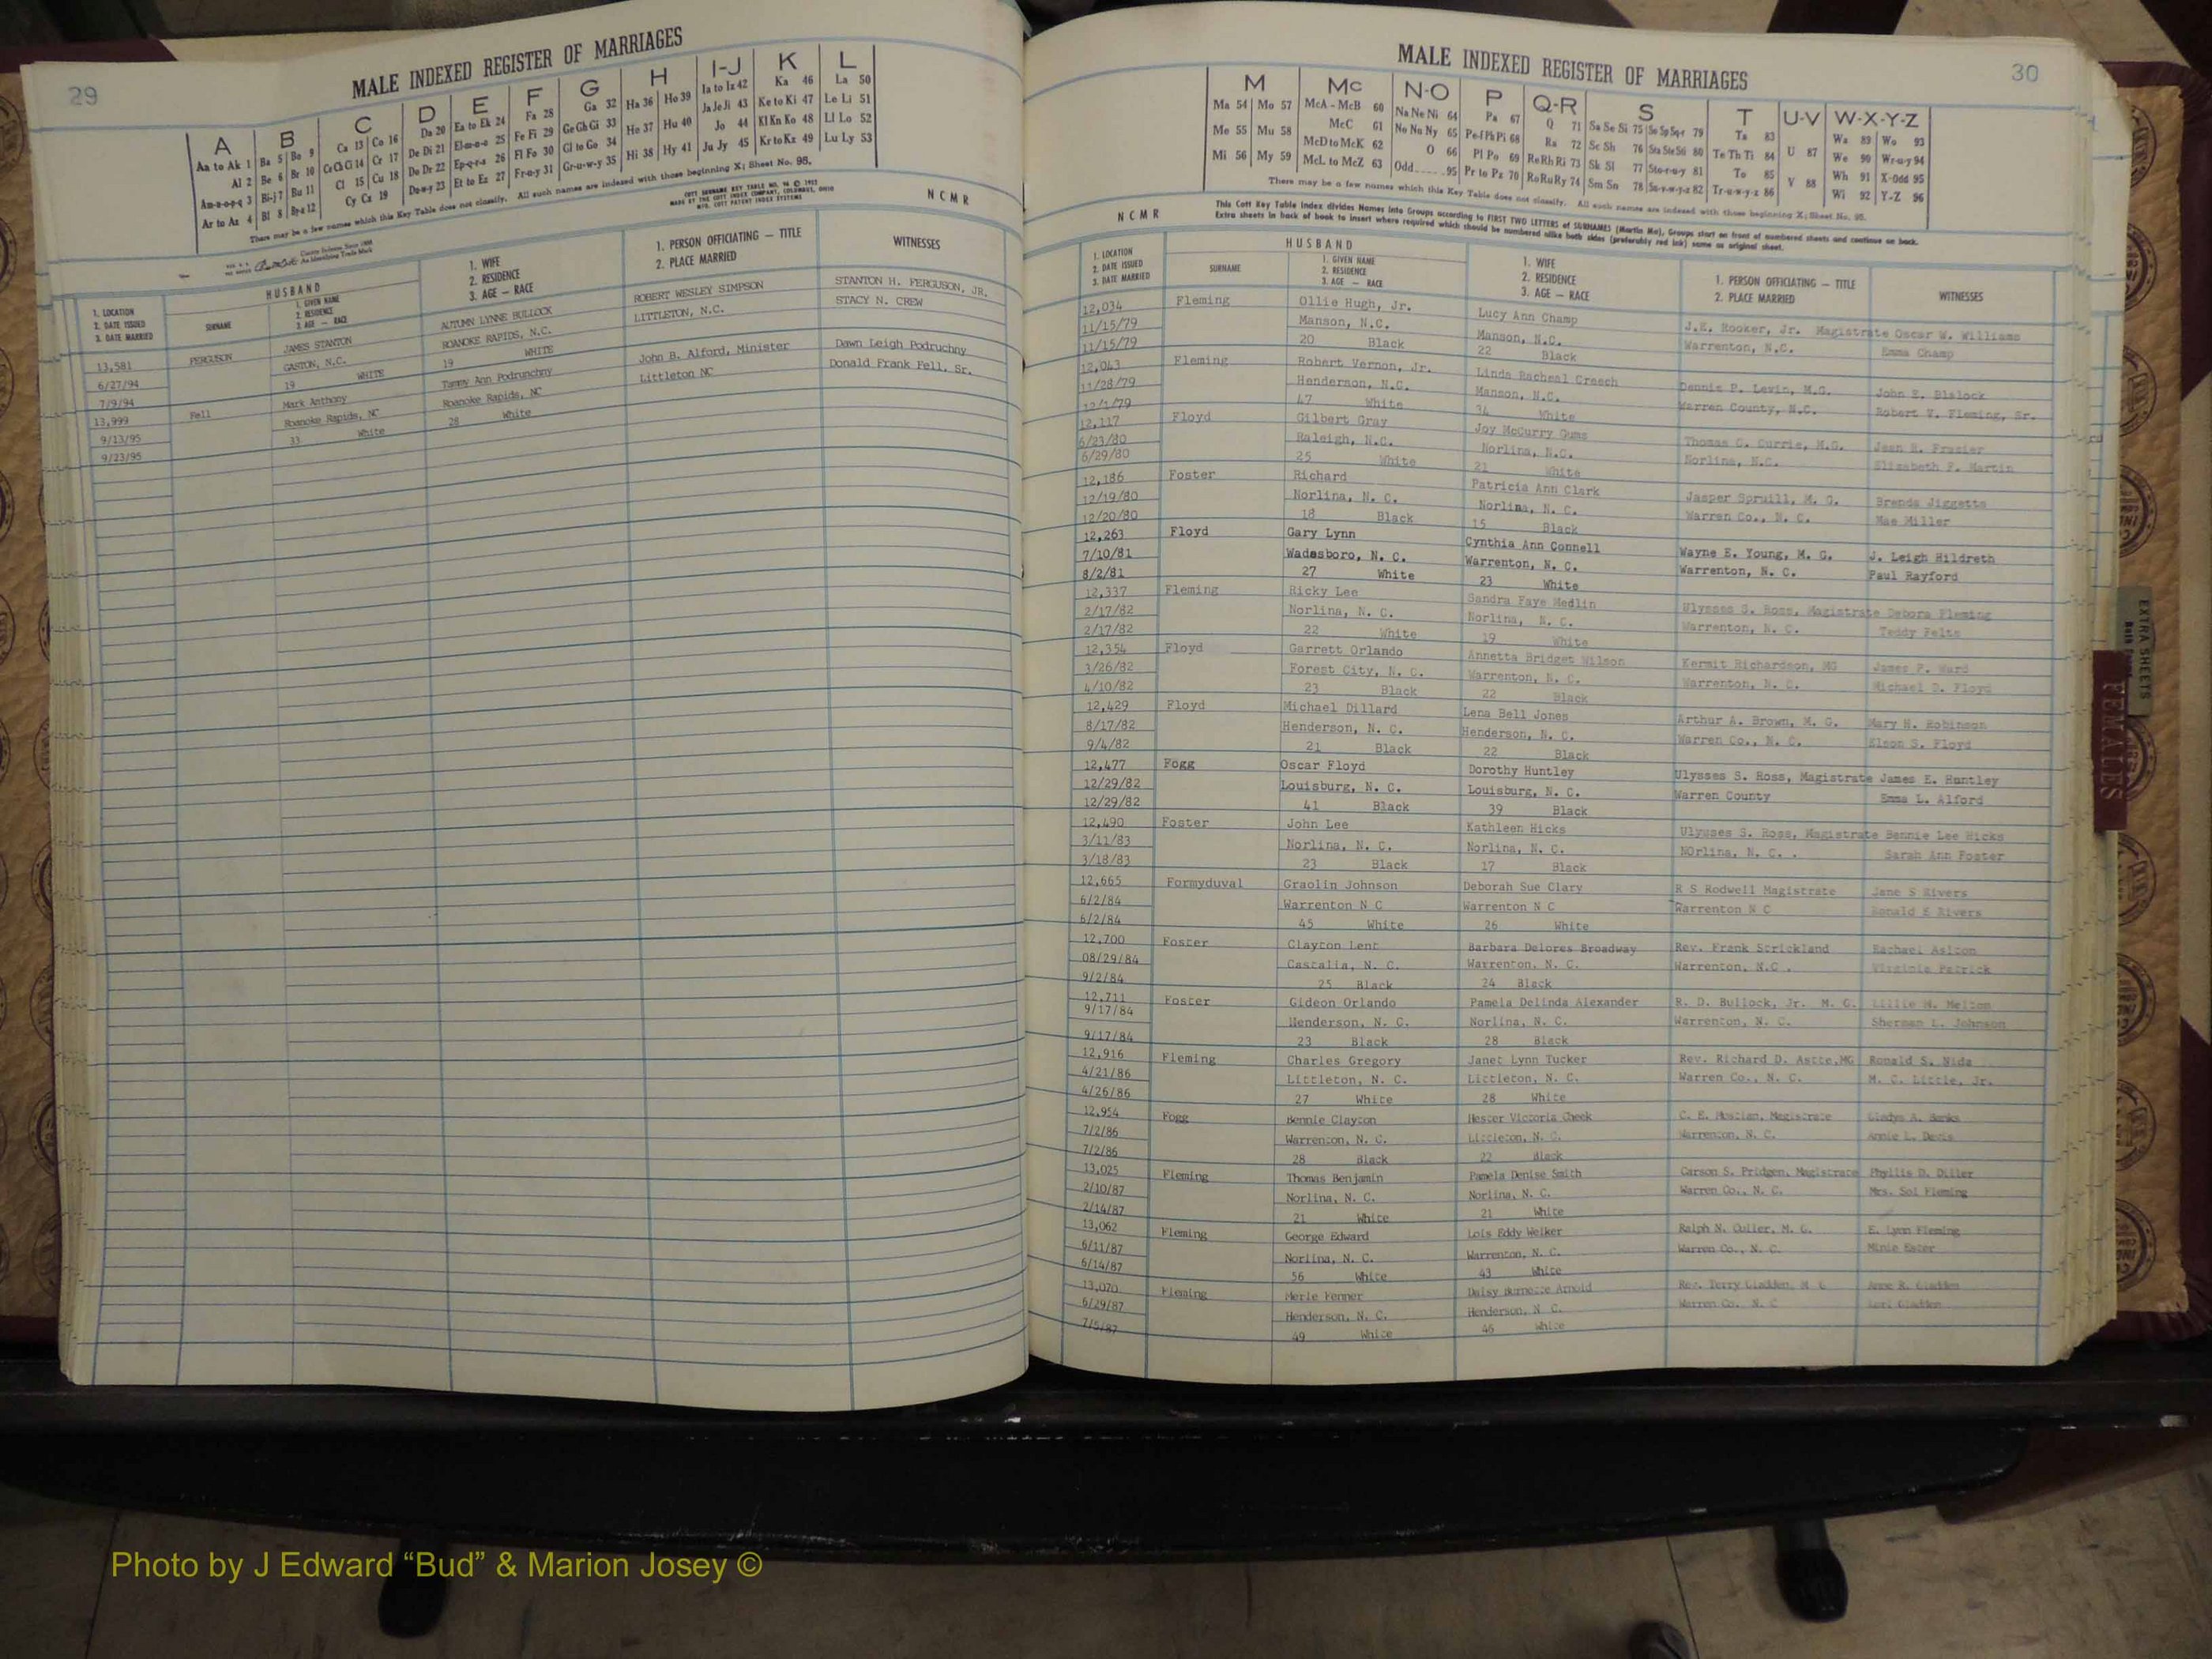 29
MALE INDEXED REGISTER OF MARRIAGES
A B C D E F G H I-J K L
Aa to Ak 1 Ba 5 Bo 9 Ca 13 Co 16 Da 20 Ea to Ek 24 Fa 28 Ga 32 Ha 36 Ho 39 Ia to Iz 42 Ka 46 La 50
Al 2 Be 6 Br 10 Ce Ch Ci 14 Cr 17 De Di 21 El-m-n-o 25 Fe Fi 29 Ge Gh Gi 33 He 37 Hu 40 Ja Je Ji 43 Ke to Ki 47 Le Li 51
Am-n-o-p-q 3 Bi-j 7 Bu 11 Cl 15 Cu 18 Do Dr 22 Ep-q-r-s 26 Fl Fo 30 Gl to Go 34 Hi 38 Hy 41 Jo 44 Kl Kn Ko 48 Ll Lo 52
Ar to Az 4 Bl 8 By-z 12 Cy Cz 19 Du-w-y 23 Et to Ez 27 Fr-u-y 31 Gr-u-w-y 35 Ju Jy 45 Kr to Kz 49 Lu Ly 53
There may be a few names which this Key Table does not classify. All such names are indexed with those beginning X; Sheet No. 95.
NCMR
HUSBAND
1. LOCATION
2. DATE ISSUED
3. DATE MARRIED
SURNAME
1. GIVEN NAME
2. RESIDENCE
3. AGE — RACE
1. WIFE
2. RESIDENCE
3. AGE — RACE
1. PERSON OFFICIATING — TITLE
2. PLACE MARRIED
WITNESSES
13,581 FERGUSON JAMES STANTON AUTUMN LYNNE BULLOCK ROBERT WESLEY SIMPSON STANTON H. FERGUSON, JR.
6/27/94 GASTON, N.C. ROANOKE RAPIDS, N.C. LITTLETON, N.C. STACY N. CREW
7/9/94 19 WHITE 19 WHITE
13,999 Fell Mark Anthony Tammy Ann Podrunchny John B. Alford, Minister Dawn Leigh Podruchny
9/13/95 Roanoke Rapids, NC Roanoke Rapids, NC Littleton NC Donald Frank Fell, Sr.
9/23/95 33 White 28 White
30
MALE INDEXED REGISTER OF MARRIAGES
M Mc N-O P Q-R S T U-V W-X-Y-Z
Ma 54 Mo 57 McA - McB 60 Na Ne Ni 64 Pa 67 Q 71 Sa Se Si 75 So Sp Sq-r 79 Ta 83 Wa 89 Wo 93
Me 55 Mu 58 McC 61 No Nu Ny 65 Pe-f Ph Pi 68 Ra 72 Sc Sh 76 Sta Ste Sti 80 Te Th Ti 84 U 87 We 90 Wr-u-y 94
Mi 56 My 59 McD to McK 62 O 66 Pl Po 69 Re Rh Ri 73 Sk Sl 77 Sto-r-u-y 81 To 85 V 88 Wh 91 X-Odd 95
McL to McZ 63 Odd 95 Pr to Pz 70 Ro Ru Ry 74 Sm Sn 78 Su-v-w-y-z 82 Tr-u-w-y-z 86 Wi 92 Y-Z 96
There may be a few names which this Key Table does not classify. All such names are indexed with those beginning X; Sheet No. 95.
This Cott Key Table Index divides Names into Groups according to FIRST TWO LETTERS of SURNAMES (Martin Ma), Groups start on front of numbered sheets and continue on back.
Extra sheets in back of book to insert where required which should be numbered alike both sides (preferably red ink) same as original sheet.
NCMR
HUSBAND
1. LOCATION
2. DATE ISSUED
3. DATE MARRIED
SURNAME
1. GIVEN NAME
2. RESIDENCE
3. AGE — RACE
1. WIFE
2. RESIDENCE
3. AGE — RACE
1. PERSON OFFICIATING — TITLE
2. PLACE MARRIED
WITNESSES
12,034 Fleming Ollie Hugh, Jr. Lucy Ann Champ J.E. Rooker, Jr. Magistrate Oscar W. Williams
11/15/79 Manson, N.C. Manson, N.C. Warrenton, N.C. Emma Champ
11/15/79 20 Black 22 Black
12,043 Fleming Robert Vernon, Jr. Linda Racheal Creech Dennis P. Levin, M.G. John E. Blalock
11/28/79 Henderson, N.C. Manson, N.C. Warren County, N.C. Robert V. Fleming, Sr.
12/1/79 47 White 34 White
12,117 Floyd Gilbert Gray Joy McCurry Gums Thomas C. Currie, M.G. Jean R. Frazier
6/23/80 Raleigh, N.C. Norlina, N.C. Norlina, N.C. Elizabeth F. Martin
6/29/80 25 White 21 White
12,186 Foster Richard Patricia Ann Clark Jasper Spruill, M. G. Brenda Jiggetts
12/19/80 Norlina, N. C. Norlina, N. C. Warren Co., N. C. Mae Miller
12/20/80 18 Black 15 Black
12,263 Floyd Gary Lynn Cynthia Ann Connell Wayne E. Young, M. G. J. Leigh Hildreth
7/10/81 Wadesboro, N. C. Warrenton, N. C. Warrenton, N. C. Paul Rayford
8/2/81 27 White 23 White
12,337 Fleming Ricky Lee Sandra Faye Medlin Ulysses S. Ross, Magistrate Debora Fleming
2/17/82 Norlina, N. C. Norlina, N. C. Warrenton, N. C. Teddy Felts
2/17/82 22 White 19 White
12,354 Floyd Garrett Orlando Annetta Bridget Wilson Kermit Richardson, MG James F. Ward
3/26/82 Forest City, N. C. Warrenton, N. C. Warrenton, N. C. Michael D. Floyd
4/10/82 23 Black 22 Black
12,429 Floyd Michael Dillard Lena Bell Jones Arthur A. Brown, M. G. Mary H. Robinson
8/17/82 Henderson, N. C. Henderson, N. C. Warren Co., N. C. S. Floyd
9/4/82 21 Black 22 Black
12,477 Fogg Oscar Floyd Dorothy Huntley Ulysses S. Ross, Magistrate James E. Huntley
12/29/82 Louisburg, N. C. Louisburg, N. C. Warren County Emma L. Alford
12/29/82 41 Black 39 Black
12,490 Foster John Lee Kathleen Hicks Ulysses S. Ross, Magistrate Bennie Lee Hicks
3/11/83 Norlina, N. C. Norlina, N. C. NOrlina, N. C. . Sarah Ann Foster
3/18/83 23 Black 17 Black
12,665 Formyduval Graolin Johnson Deborah Sue Clary R S Rodwell Magistrate Jane S Rivers
6/2/84 Warrenton N C Warrenton N C Warrenton N C Ronald S Rivers
6/2/84 45 White 26 White
12,700 Foster Clayton Lent Barbara Delores Broadway Rev. Frank Strickland Rachael Alston
08/29/84 Castalia, N. C. Warrenton, N. C. Warrenton, N.C . Virginia Patrick
9/2/84 25 Black 24 Black
12,711 Foster Gideon Orlando Pamela Delinda Alexander R. D. Bullock, Jr. M. G. Lillie M. Melton
9/17/84 Henderson, N. C. Norlina, N. C. Warrenton, N. C. Sherman L. Johnson
9/17/84 23 Black 28 Black
12,916 Fleming Charles Gregory Janet Lynn Tucker Rev. Richard D. MG Ronald S. Nida
4/21/86 Littleton, N. C. Littleton, N. C. Warren Co., N. C. M. C. Little, Jr.
4/26/86 27 White 28 White
12,954 Fogg Bennie Clayton Hester Victoria Cheek C. E. Magistrate Gladys A. Banks
7/2/86 Warrenton, N. C. Littleton, N. C. Warrenton, N. C. Annie L. Davis
7/2/86 28 Black 22 Black
13,025 Fleming Thomas Benjamin Pamela Denise Smith Carson S. Pridgen, Magistrate Phyllis D. Diller
2/10/87 Norlina, N. C. Norlina, N. C. Warren Co., N. C. Mrs. Sol Fleming
2/14/87 21 White 21 White
13,062 Fleming George Edward Lois Eddy Welker Ralph N. Culler, M. G. E. Lynn Fleming
6/11/87 Norlina, N. C. Warrenton, N. C. Warren Co., N. C.
6/14/87 56 White 43 White
13,070 Fleming Merle Fenner Daisy Burnette Arnold Rev. Terry Gladden, M G Anne R. Gladden
6/29/87 Henderson, N. C. Henderson, N. C. Warren Co. N. C Lori Gladden
7/5/87 49 White 46 White
EXTRA SHEETS
FEMALES
Photo by J Edward “Bud” & Marion Josey ©